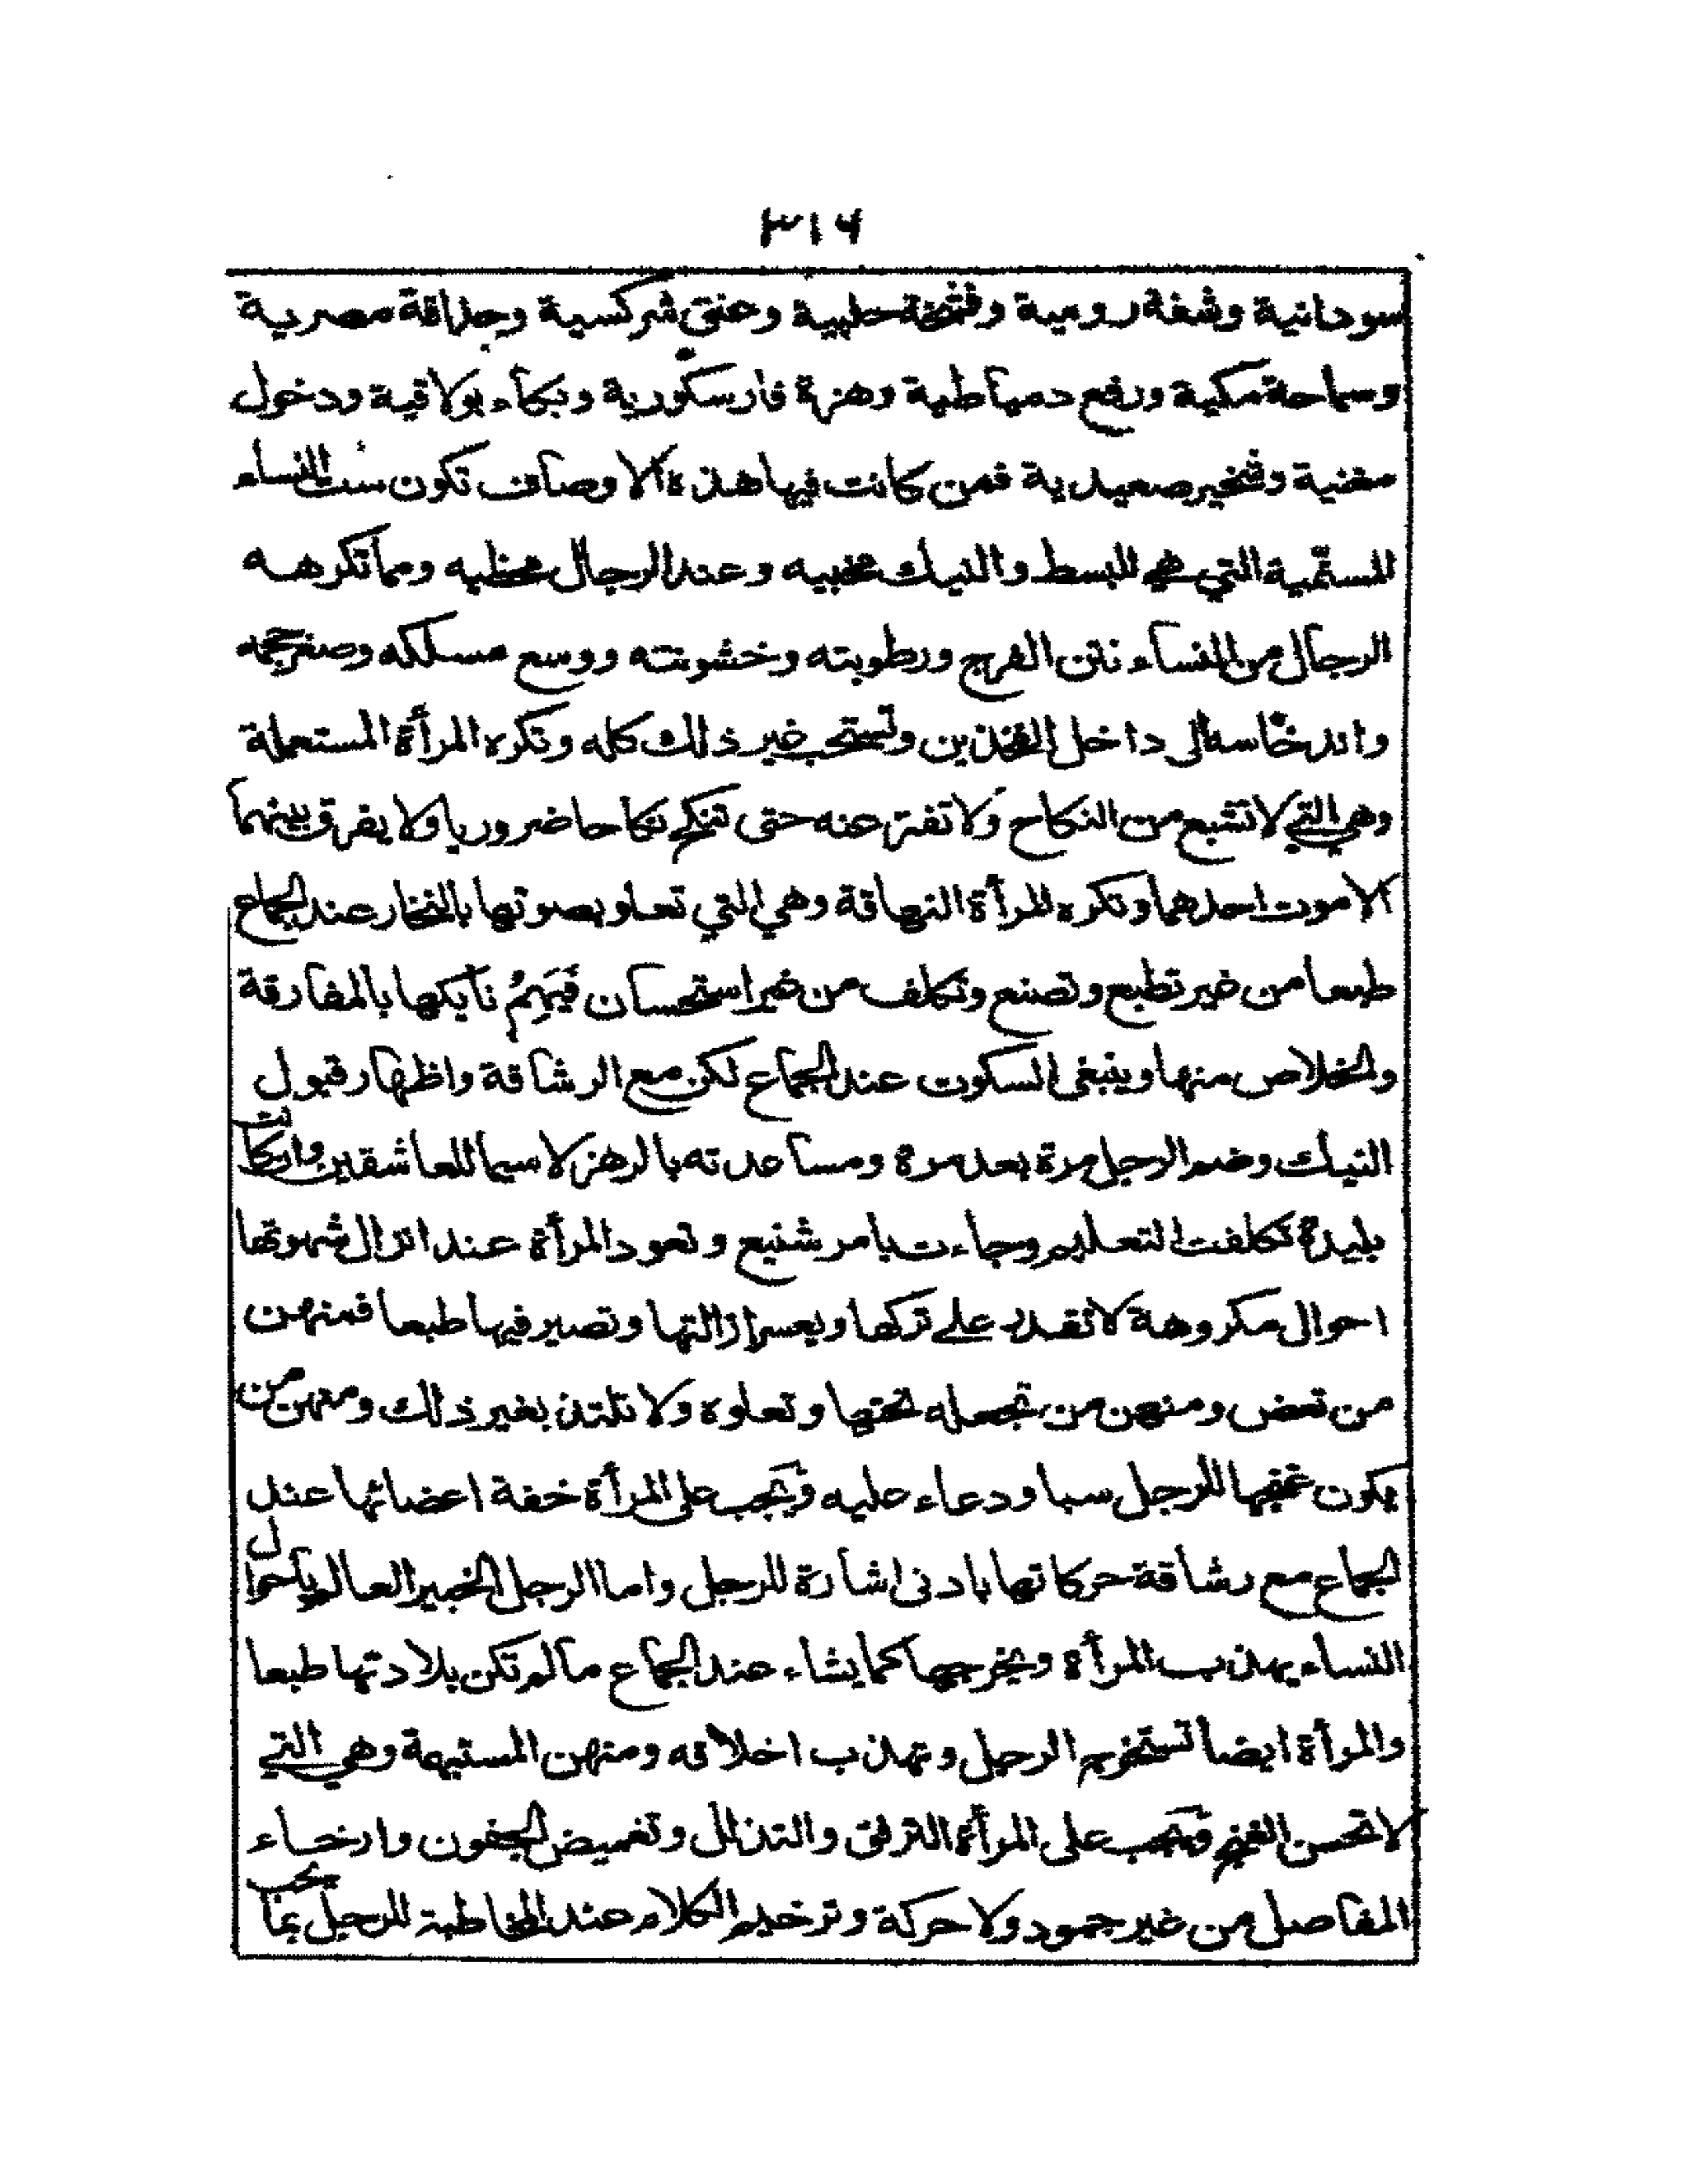 ٣١٦
سودانية وشفة رومية وفتحة حلبية وعنق شركسية وحداقة مصرية
وسماحة مكية ورفع دمياطية وهزة فارسكورية وبكاء بولاقية ودخول
مغنية وشخير صعيدية فمن كانت فيها هذه الاوصاف تكون ست النساء
المستمية التي هي للبسط والنيك مخبيه وعند الرجال محظيه ومما تكرهه
الرجال من النساء نتن الفرج ورطوبته وخشونته ووسع مسلكه وصغر حجمه
واندخاسه الى داخل الفخذين وتستحب غير ذلك كله وتكره المرأة المستعملة
وهي التي لا تشبع من النكاح ولا تفتر عنه حتى تنكح نكاحا ضروريا ولا يفرق بينهما
الا موت احدهما وتكره المرأة النهاقة وهي التي تعلو بصوتها بالنخار عند الجماع
طبعا من غير تطبع وتصنع وتكلف من غير استحسان فيهم نايكها بالمفارقة
والخلاص منها وينبغي السكوت عند الجماع لكن مع الرشاقة واظهار قبول
النيك وضم الرجل مرة بعد مرة ومساعدته بالرهز لاسيما للعاشقين وان كانت
بليدة تكلفت التعليم وجاءت بامر شنيع وتعود المرأة عند انزال شهوتها
احوال مكروهة لا تقدر على تركها ويعسر ازالتها وتصير فيها طبعا فمنهن
من تعض ومنهن من تجعله تحتها وتعلوه ولا تلتذ بغير ذلك ومنهن من
يكون غنجها للرجل سبا ودعاء عليه ويجب على المرأة خفة اعضائها عند
الجماع مع رشاقة حركاتها بادنى اشارة للرجل واما الرجل الخبير العالم باحوال
النساء يهذب المرأة ويخرجها كما يشاء عند الجماع ما لم تكن بلادتها طبعا
والمرأة ايضا تستخرج الرجل وتهذب اخلاقه ومنهن المستيهة وهي التي
لا تحسن الغنج ويجب على المرأة الترفق والتذلل وتغميض الجفون وارخاء
المفاصل من غير جمود ولا حركة وترخيم الكلام عند المخاطبة للرجل بما يحب